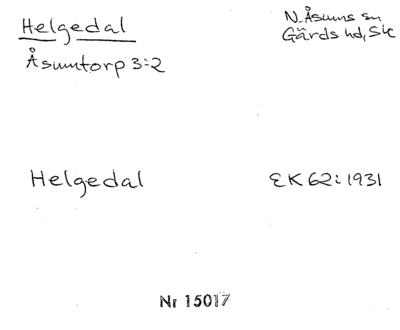 Helgedal
N. Åsums sn
Gärds hd, Sk
Åsumtorp 3:2
Helgedal
EK 62:1931
Nr 15017